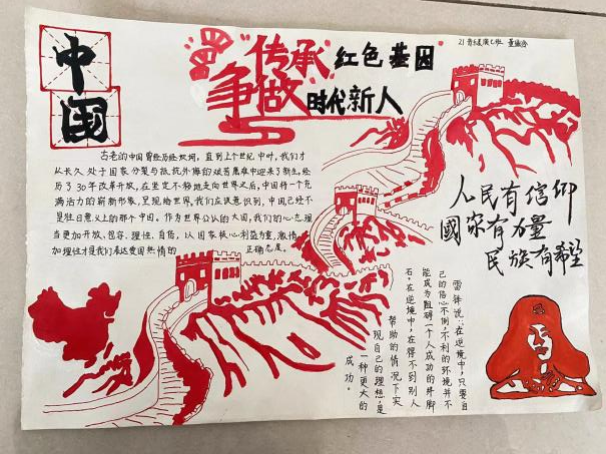 中国
"传承"红色基因
争做时代新人
古老的中国曾经历经坎坷,直到上个世纪中叶,我们才
从长久处于国家分裂与抵抗外侮的
历了30年改革开放,在坚定不移地走向世界之后,中国将一个充
满活力的崭新形象,呈现给世界,我们应该意识到,中国已经不
是旧日意义上的那个中国。作为世界公认的大国,我们的心态,理
当更加开放、包容、理性、自信,以国家核心利益为重,激情
加理性才是我们表达爱国热情的
正确态度。
人民有信仰
國家有力量
民族有希望
雷锋说:在逆境中,只要自
己的信心不倒,不利的环境并不
能成为阻碍一个人成功的绊脚
石。在逆境中,在得不到别人
帮助的情况下实
现自己的理想,是
一种更大的
成功。